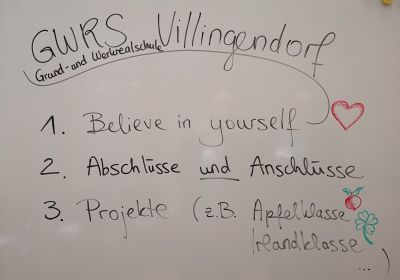 GWRS Villingendorf
Grund- und Werkrealschule
1. Believe in yourself
2. Abschlüsse und Anschlüsse
3. Projekte (z.B. Apfelklasse
Irlandklasse
...)